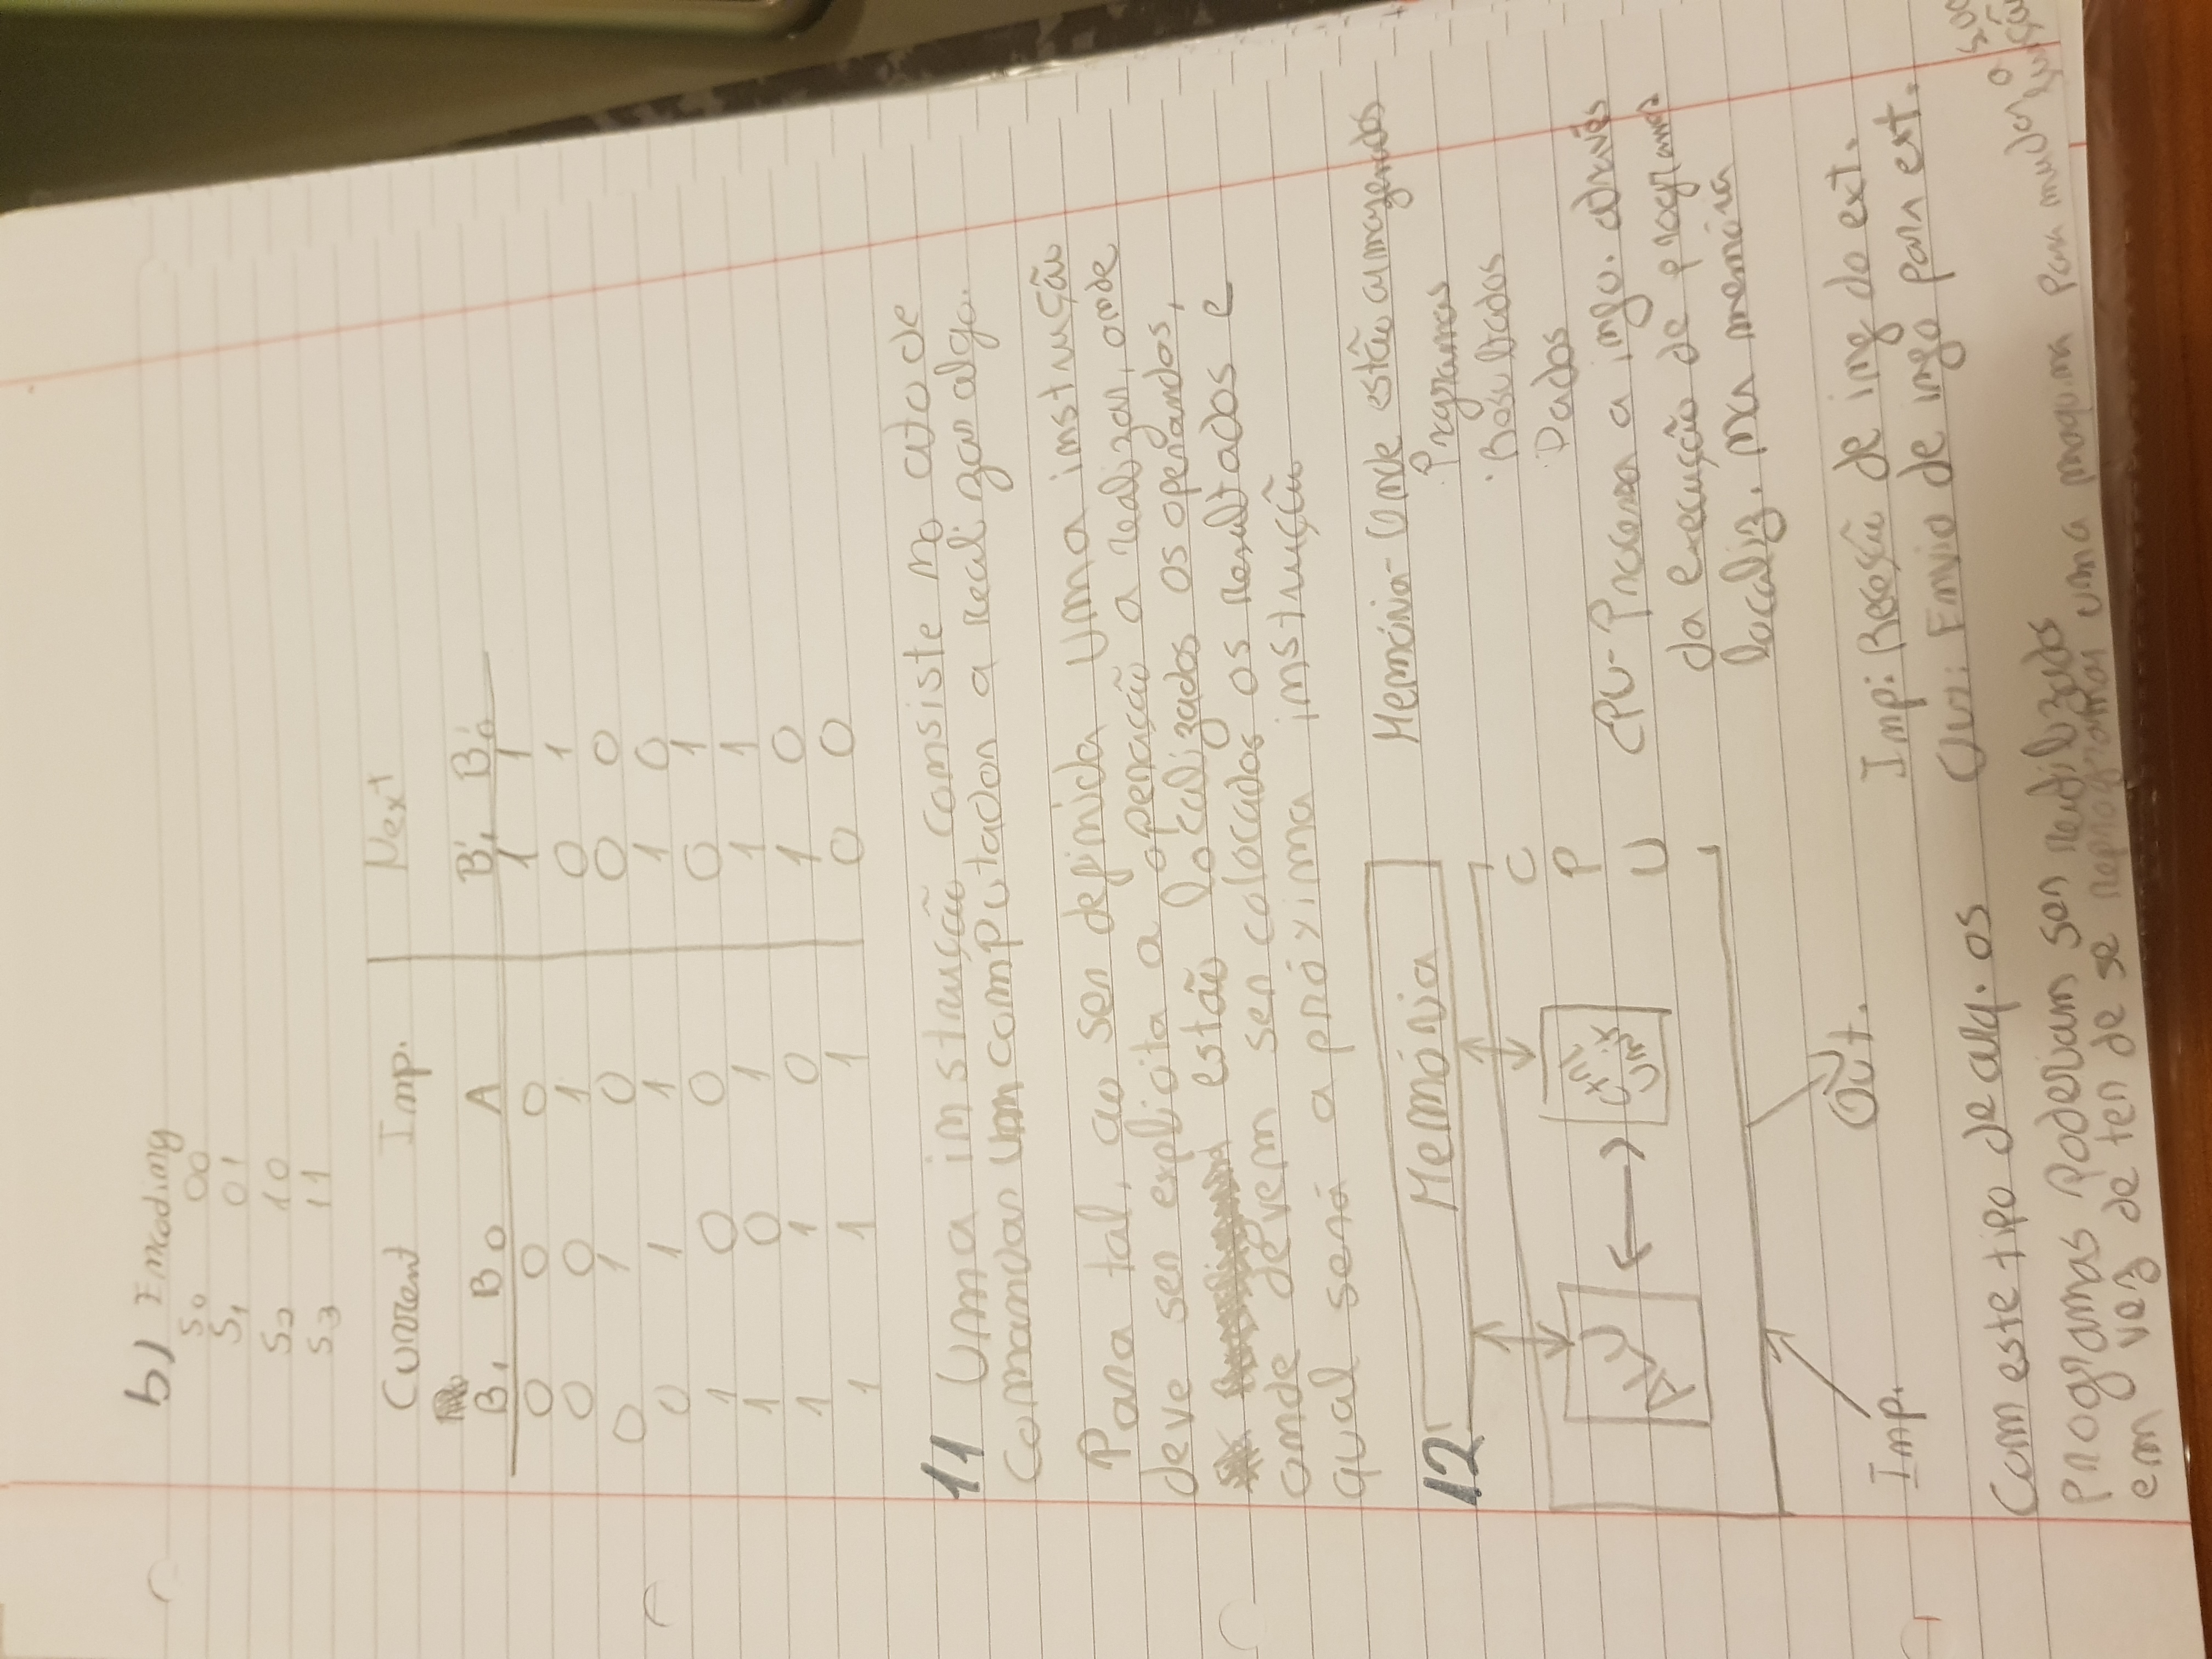 b) Encoding
S0 00
S1 01
S2 10
S3 11
Current Inp. Next
B1 B0 A B'1 B'0
0 0 0 1 1
0 0 1 0 1
0 1 0 0 0
0 1 1 1 0
1 0 0 0 1
1 0 1 1 1
1 1 0 1 0
1 1 1 0 0
11 Uma instrução consiste no ato de
comandar um computador a realizar algo.
Para tal, ao ser definida uma instrução
deve ser explicita a operação a realizar, onde
estão localizados os operandos,
onde devem ser colocados os resultados e
qual será a próxima instrução
12 Memória
ALU
Ctrl
Unit
C
P
U
Inp.
Out.
Memória - Onde estão armazenados
Programas
Resultados
Dados
CPU - Processa a info. através
da execução de programas
localiz. na memória
Inp: Receção de inf do ext.
Out: Envio de info para ext.
Com este tipo de arq. os
programas poderiam ser reutilizados
em vez de ter de se reprogramar uma maquina para mudar a sua
função